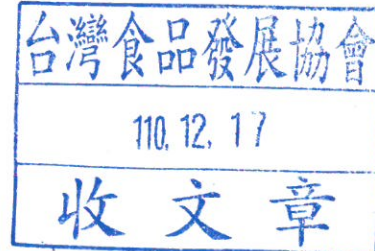 台灣食品發展協會
110.12.17
收文章